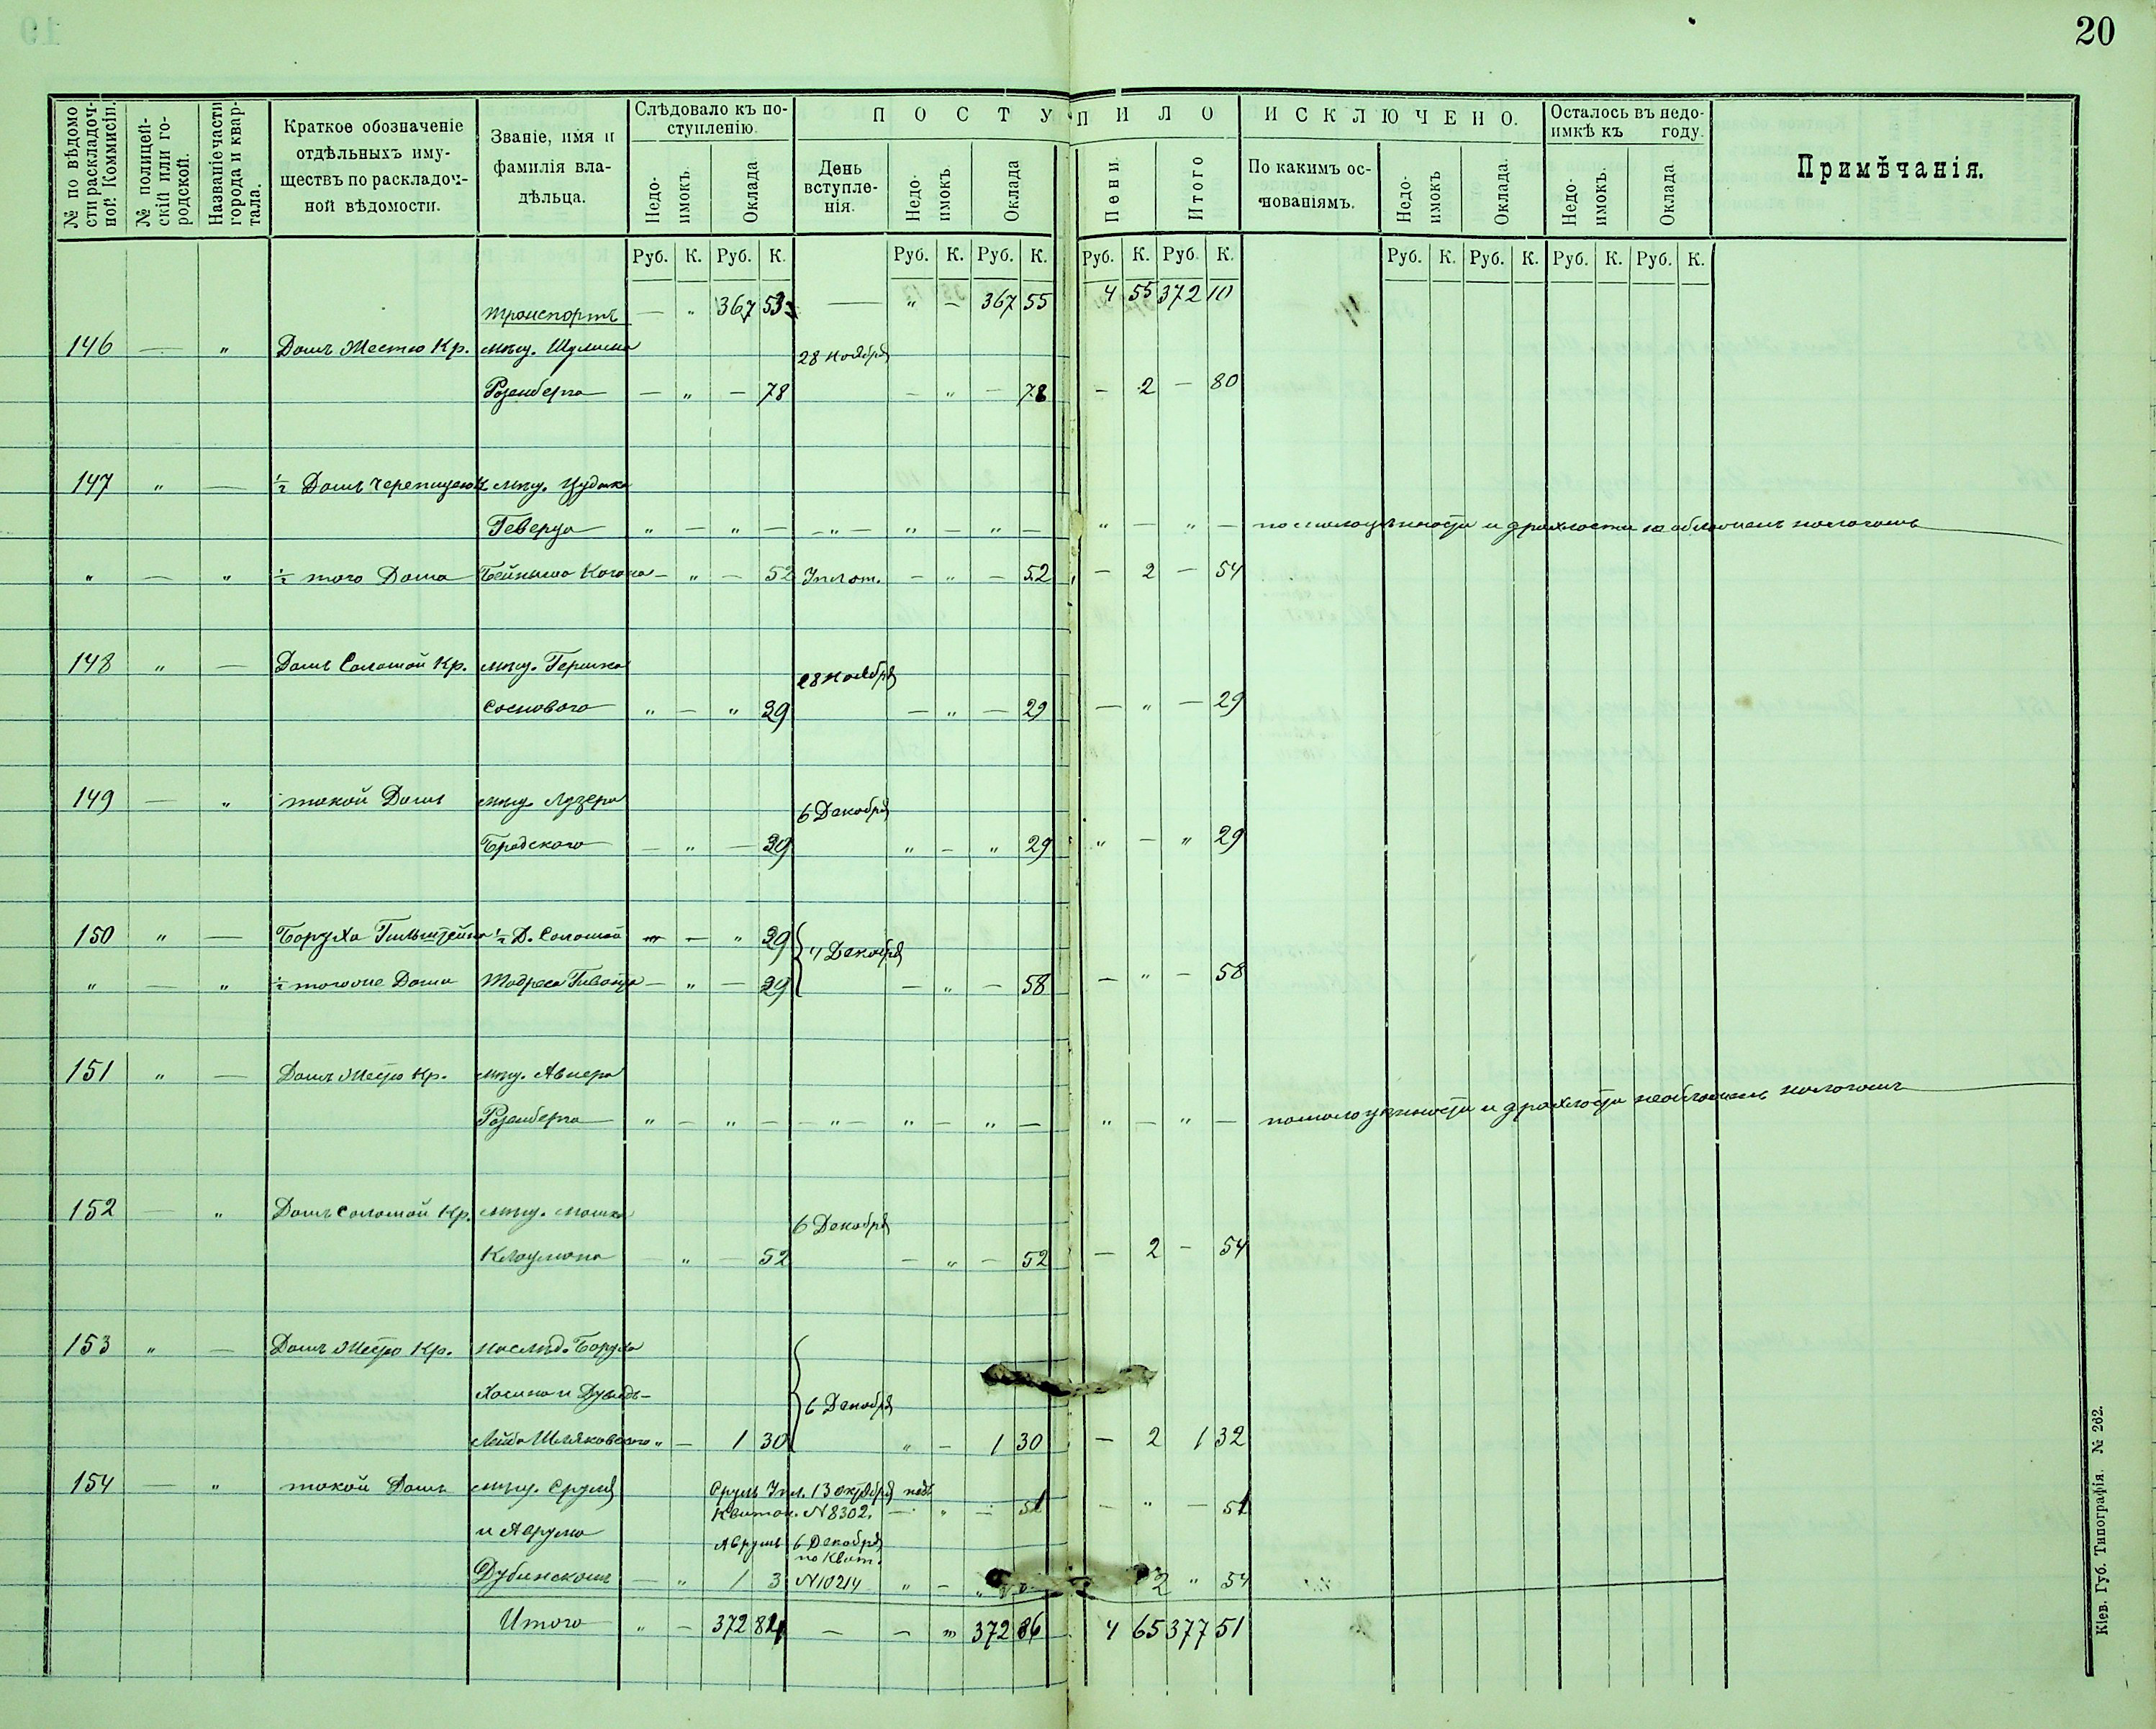 20
№ по вѣдомости раскладочной Коммисіи.
№ полицейскій или городской.
Названіе части города и квартала.
Краткое обозначеніе отдѣльныхъ имуществъ по раскладочной вѣдомости.
Званіе, имя и фамилія владѣльца.
Слѣдовало къ поступленію.
Недоимокъ. Оклада.
ПОСТУПИЛО
День вступленія. Недоимокъ. Оклада Пени. Итого
ИСКЛЮЧЕНО.
По какимъ основаніямъ. Недоимокъ Оклада.
Осталось въ недоимкѣ къ году.
Недоимокъ. Оклада
Примѣчанія.
Руб. К. Руб. К. Руб. К. Руб. К. Руб. К. Руб. К. Руб. К. Руб. К. Руб. К. Руб. К.
транспортъ — " 367 53 — " — 367 55 4 55 372 10
146 — " Домъ Жестю Кр. мѣщ. Шулима 28 Ноября
Розенберга — " — 78 — " — 78 — 2 — 80
147 " — ½ Домъ Черепицею мѣщ.
Геверца " — " — — " — " — " — " — " — по малоцѣнности и драхлости не обложенъ налогомъ
" — " ½ того Дома Бейныша Когана — " — 52 — " — 52 — 2 — 54
148 " — Домъ Соломой Кр. мѣщ. Гершка 28 Ноября
Сосноваго " — " 29 — " — 29 — " — 29
149 — " такой Домъ мѣщ. Лузера 6 Декабря
Бродскаго — " — 29 " — " 29 " — " 29
150 " — Боруха Гильштейна ½ Д. Соломой — " 29 4 Декабря
" — " ½ тогоже Дома — " — 29 — " — 58 — " — 58
151 " — Домъ Жестю Кр. мѣщ. Авнера
Розенберга " — " — — " — " — " — " — " — по малоцѣнности и драхлости необложенъ налогомъ
152 — " Домъ Соломой Кр. мѣщ. Мошка 6 Декабря
Клоцмана — " — 52 — " — 52 — 2 — 54
153 " — Домъ Жестю Кр. наслѣд. Боруха
и Дувидъ-
Лейба Шляховскаго " — 1 30 6 Декабря " — 1 30 — 2 1 32
154 — " такой Домъ мѣщ. Сруля Сруль Упл. 13 октября
Квитан. № 8302. — " — 51 — " — 51
и Аврума Аврумъ 6 Декабря
по Квит.
Дубинскомъ — " 1 3 № 10214 " — " 2 " 54
Итого " — 372 84 — — " 372 86 4 65 377 51
Кіев. Губ. Типографія. № 262.